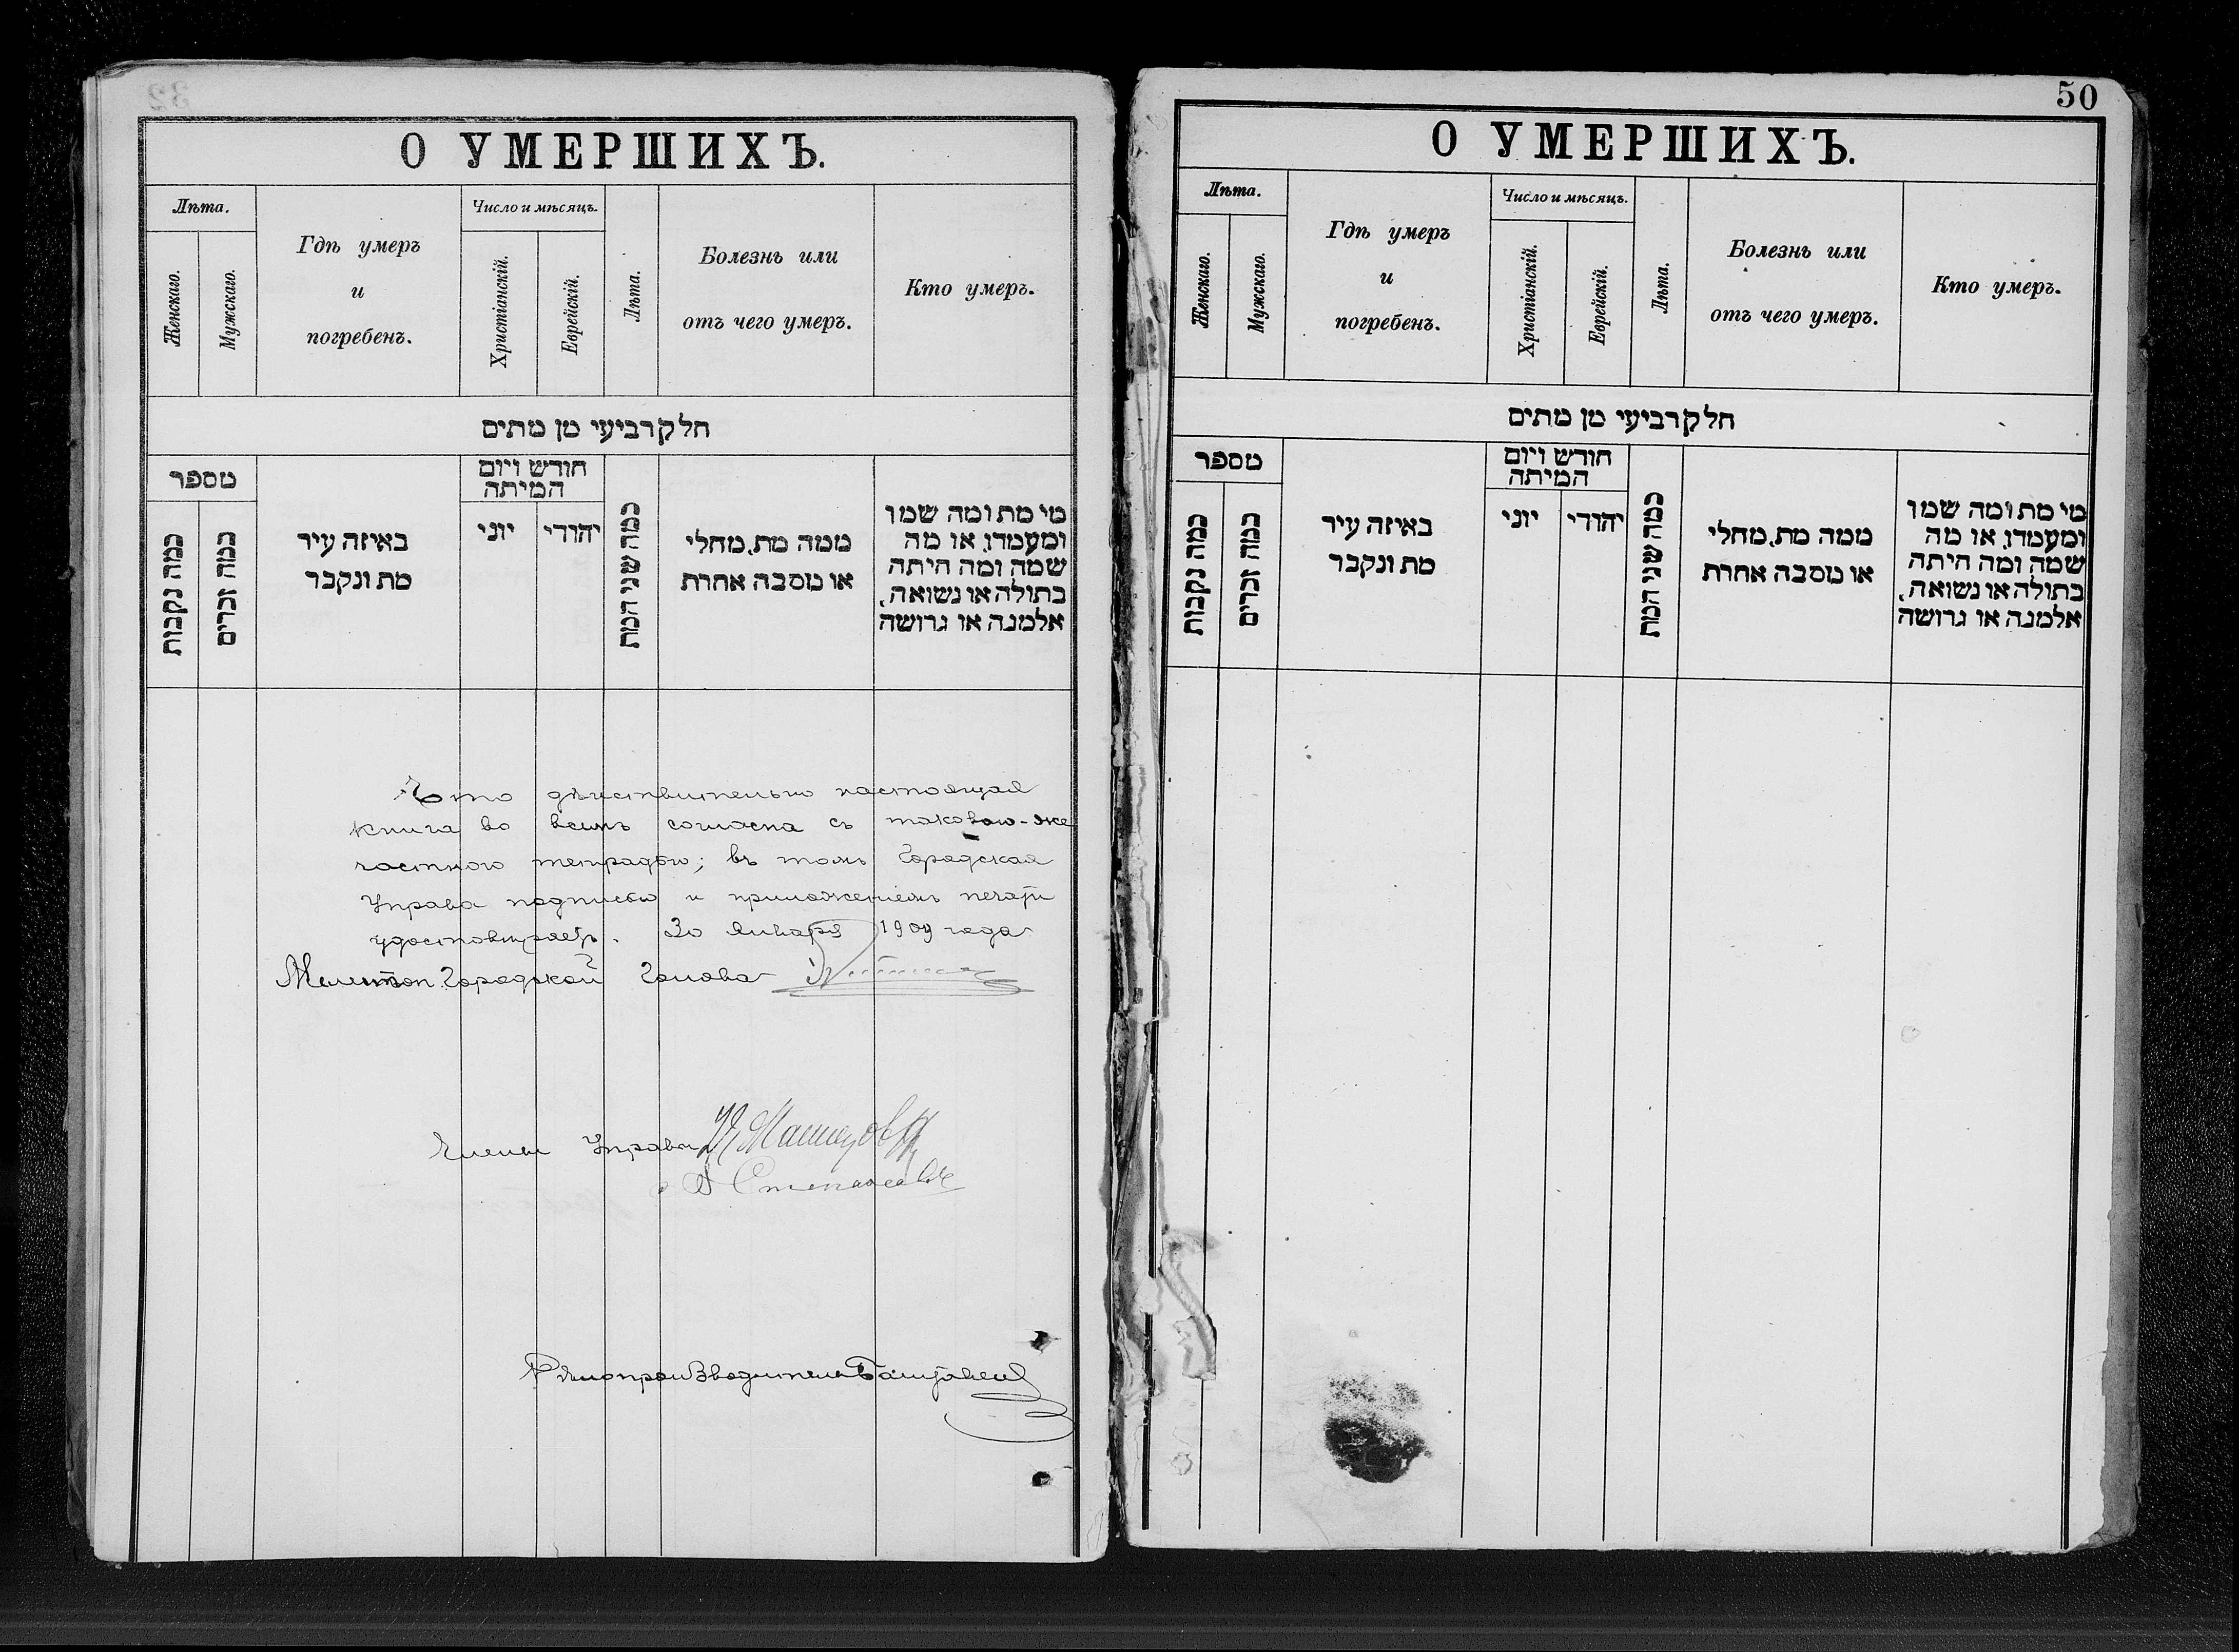 О УМЕРШИХЪ.
Лѣта.
Женскаго.
Мужскаго.
Гдѣ умеръ
и
погребенъ.
Число и мѣсяцъ.
Христіанскій.
Еврейскій.
Лѣта.
Болезнь или
отъ чего умеръ.
Кто умеръ.
חלק רביעי מן מתים
מספר
כמה נקבות
כמה זכרים
באיזה עיר
מת ונקבר
חודש ויום
המיתה
יוני
יהודי
כמה שני המת
ממה מת, מחלי
או מסבה אחרת
מי מת ומה שמו
ומעמדו, או מה
שמה ומה היתה
בתולה או נשואה,
אלמנה או גרושה
Что дѣйствительно настоящая
книга во всемъ согласна съ таковою-же
частною тетрадью; въ томъ Городская
Управа подписью и приложеніемъ печати
удостовѣряетъ. 30 Января 1909 года
Мелитоп. Городской Голова
Члены Управы
Степановъ
Дѣлопроизводитель
50
О УМЕРШИХЪ.
Лѣта.
Женскаго.
Мужскаго.
Гдѣ умеръ
и
погребенъ.
Число и мѣсяцъ.
Христіанскій.
Еврейскій.
Лѣта.
Болезнь или
отъ чего умеръ.
Кто умеръ.
חלק רביעי מן מתים
מספר
כמה נקבות
כמה זכרים
באיזה עיר
מת ונקבר
חודש ויום
המיתה
יוני
יהודי
כמה שני המת
ממה מת, מחלי
או מסבה אחרת
מי מת ומה שמו
ומעמדו, או מה
שמה ומה היתה
בתולה או נשואה,
אלמנה או גרושה